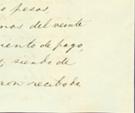 o pesos,
nas del veinte
mento de pago,
y siendo de
ron recibida